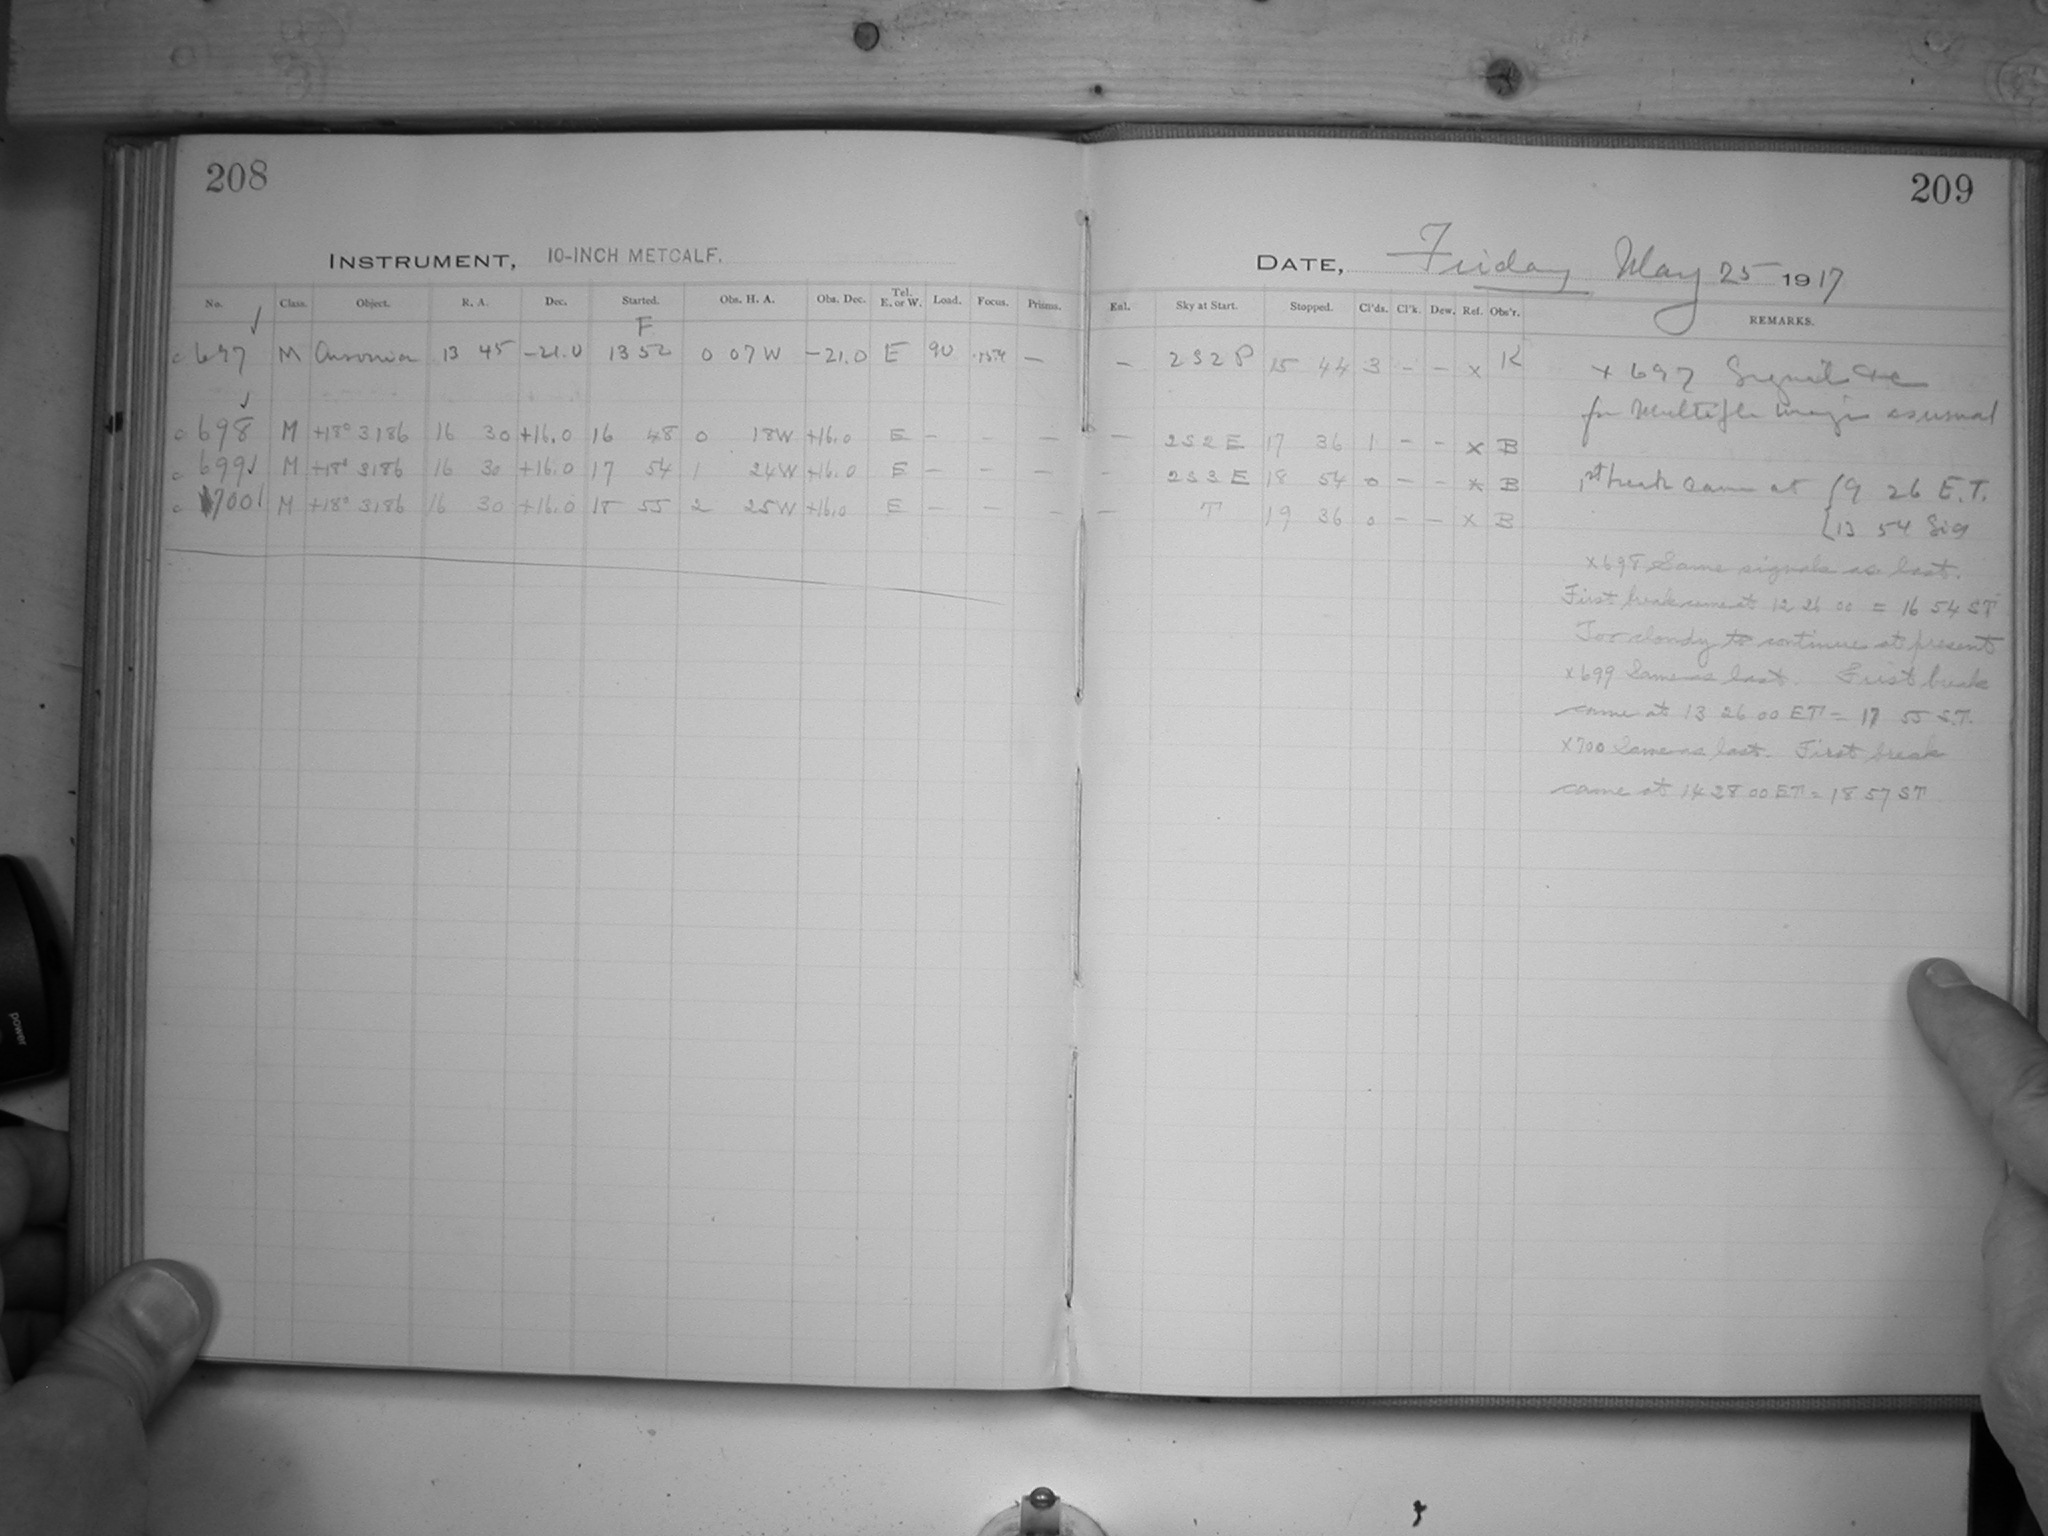 208
INSTRUMENT, 10-INCH METCALF.
No. Class. Object. R. A. Dec. Started. Obs. H. A. Obs. Dec. Tel. E. or W. Load. Focus. Prisms.
F
c 697 M Ausonia 13 45 -21.0 13 52 0 07 W -21.0 E 90 —
c 698 M +18° 3186 16 30 +16.0 16 48 0 18W +16.0 E – – —
c 699 M +18° 3186 16 30 +16.0 17 54 1 24W +16.0 E – – –
c 700 M +18° 3186 16 30 +16.0 18 55 2 25W +16.0 E – – –
209
DATE, Friday May 25 1917
Enl. Sky at Start. Stopped. Cl'ds. Cl'k. Dew. Ref. Obs'r. REMARKS.
– 2S2P 15 44 3 – – x K
— 2S2E 17 36 1 – – x B
– 2S3E 18 54 0 – – x B
— T 19 36 0 – – x B
x 697 Signals &c
for Multiple images as usual
1st break came at {9 26 E.T.
{13 54 Sid
x698 Same signals as last.
First break came at 12 26 00 = 16 54 ST
Too cloudy to continue at present
x699 Same as last. First break
came at 13 26 00 ET = 17 55 S.T.
x700 Same as last. First break
came at 14 28 00 ET = 18 57 ST
power